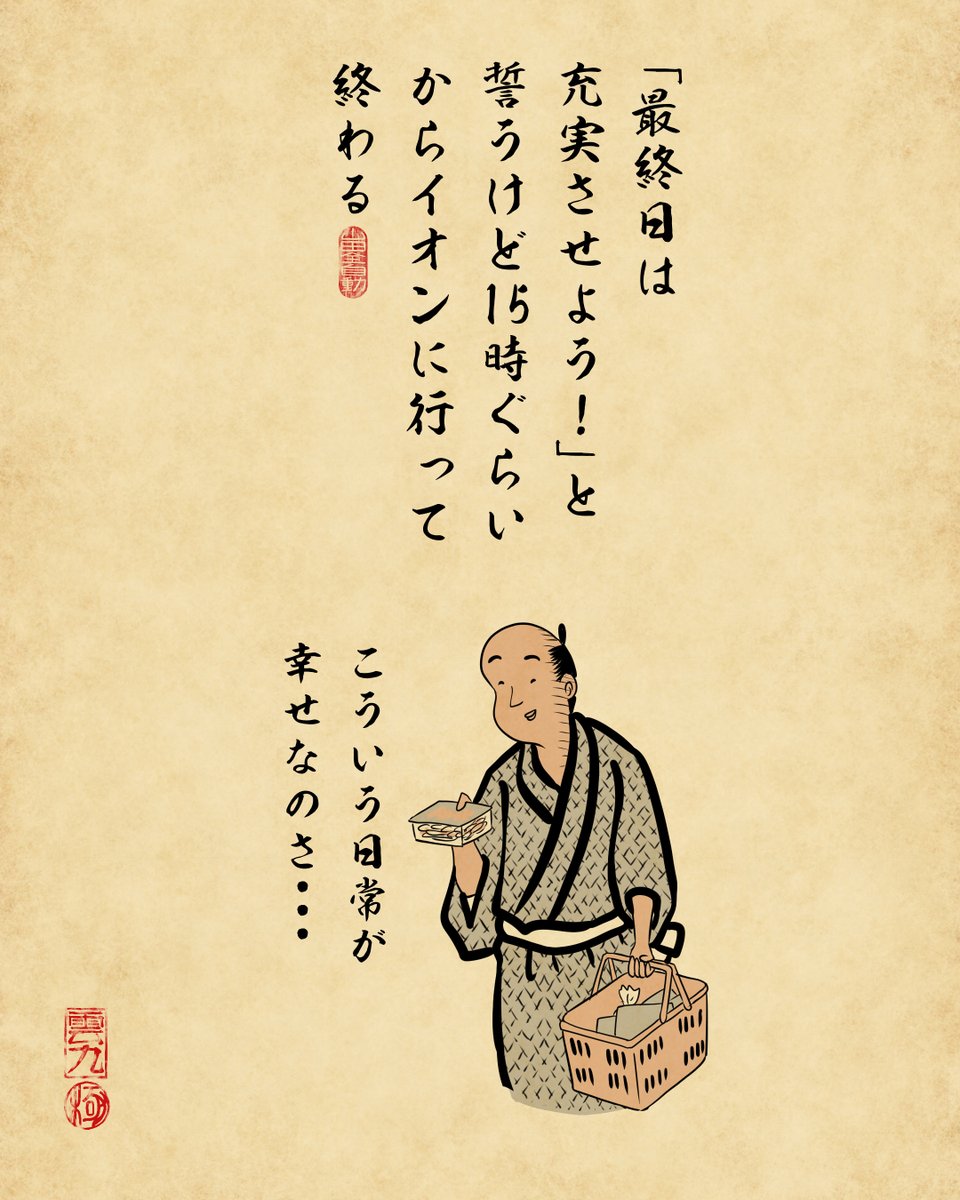 「最終日は
充実させよう！」と
誓うけど15時ぐらい
からイオンに行って
終わる
こういう日常が
幸せなのさ・・・